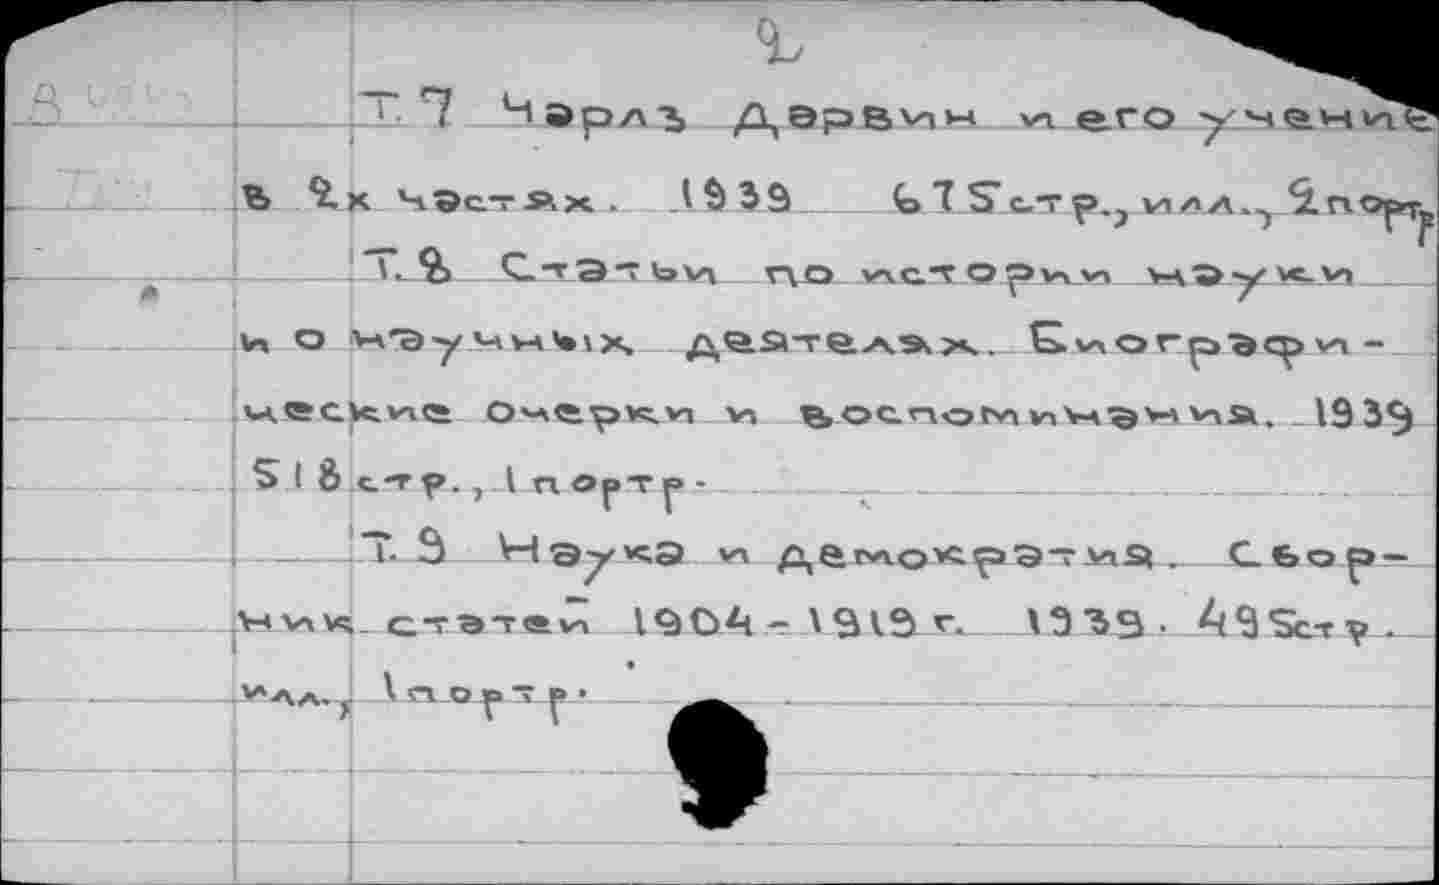 2
Т. 7 Чарлз Дарвин и его учение
в 2х частях. 1939 675 стр., илл., 2 портр
Т. 8 Статьи по истории науки
и о научных деятелях. Биографи-
ческие очерки и воспоминания. 1939
518 стр., 1 портр.
Т. 9 Наука и демократия. Сбор-
ник статей 1904-1919 г. 1939. 495 стр.
илл., 1 портр.